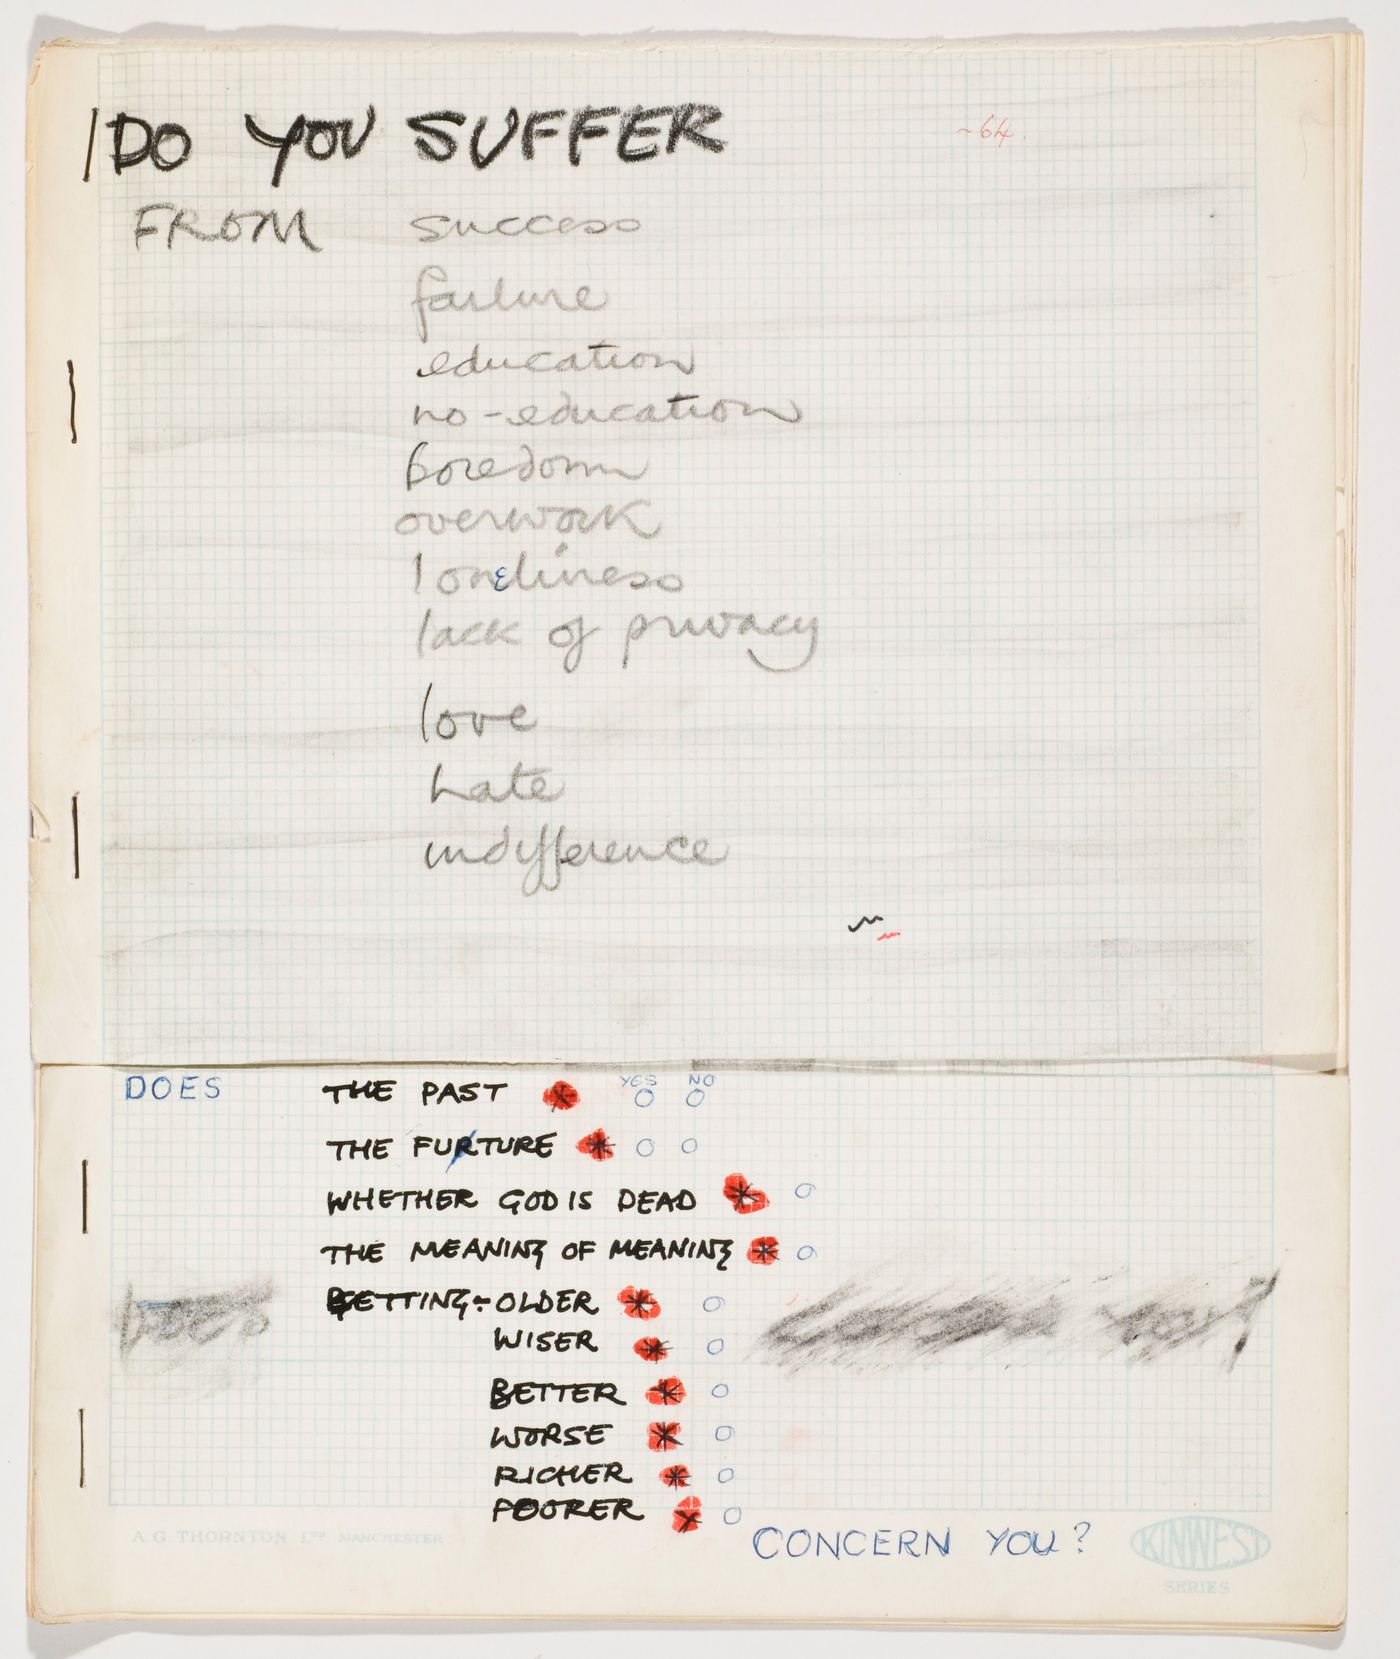 DO YOU SUFFER
-64
FROM success
failure
education
no-education
boredom
overwork
loneliness
lack of privacy
love
hate
indifference
DOES THE PAST YES NO
THE FURTURE
WHETHER GOD IS DEAD
THE MEANING OF MEANING
DOES GETTING:- OLDER
WISER
BETTER
WORSE
RICHER
POORER
CONCERN YOU?
A.G. THORNTON LTD MANCHESTER
KINWEST
SERIES